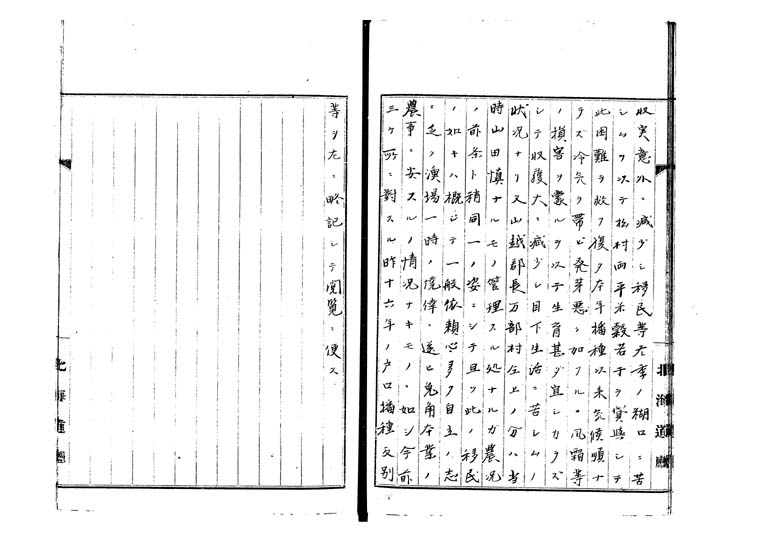 収実意外ニ減少シ移民等左季ノ糊口ニ苦
シムヲ以テ松村両平米穀若干ヲ貸与シテ
此困難ヲ救フ復タ本年播種以来気候順ナ
ラズ冷気ヲ帯ビ発芽悪シ加フルニ風霜等
ノ損害ヲ蒙ルヲ以テ生育甚ダ宜シカラズ
シテ収穫大ニ減少シ目下生活ニ苦シムノ
状況ナリ又山越郡長万部村在上ノ分ハ当
時山田慎ナルモノ管理スル処ナルカ農況
ノ前条ト稍同一ノ姿ニシテ且ツ此ノ移民
ノ如キハ概シテ一般依頼心多ク自立ノ志
ニ乏シク漁場一時ノ僥倖ニ迷ヒ兎角本業ノ
農事ニ安スルノ情況ナキモノヽ如シ今前
三ヶ所ニ対スル昨十六年ノ戸口播種反別
等ヲ左ニ略記シテ閲覧ニ便ス
北海道庁
北海道庁